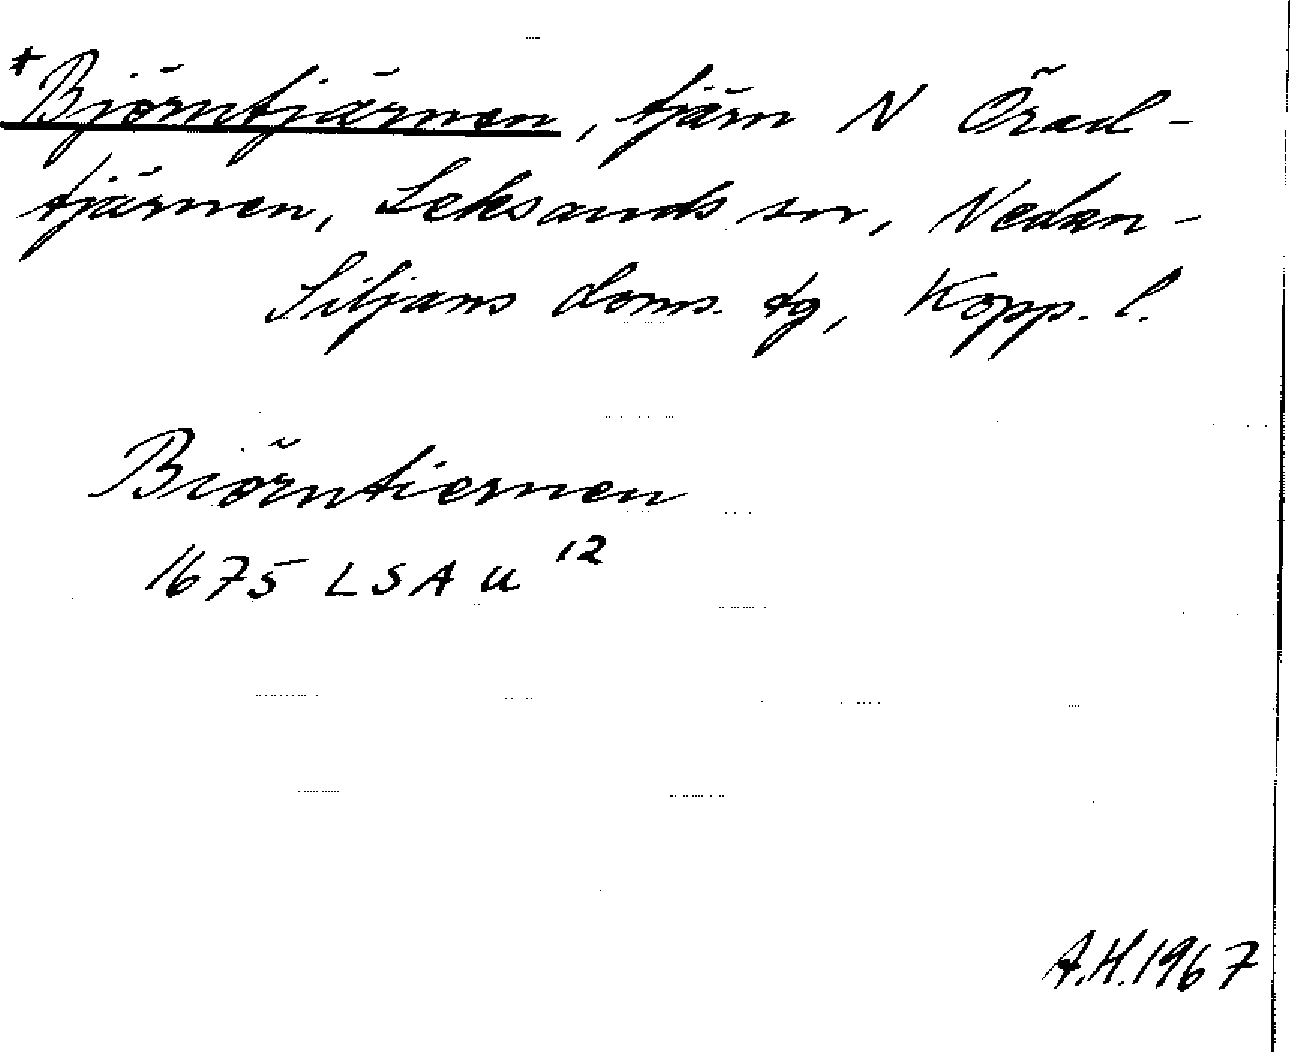 +Björntjärnen, tjärn N Örad-
tjärnen, Leksands sn, Nedan-
Siljans doms. tg, Kopp. l.
Biörntiernen
1675 LSA U 12
A.H.1967